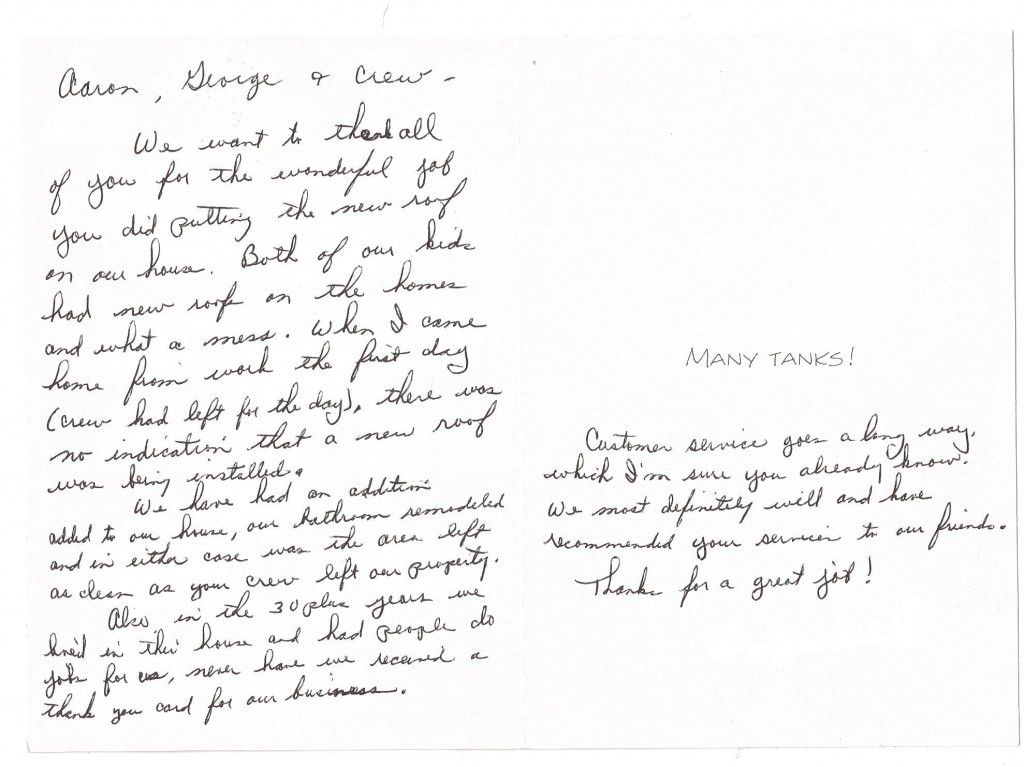 Aaron, George & Crew -
We want to thank all
of you for the wonderful job
you did putting the new roof
on our house. Both of our kids
had new roofs on the homes
and what a mess. When I came
home from work the first day
(crew had left for the day), there was
no indication that a new roof
was being installed.
We have had an addition
added to our house, our bathroom remodeled
and in either case was the area left
as clean as your crew left our property.
Also, in the 30 plus years we
lived in this house and had people do
jobs for us, never have we received a
thank you card for our business.
MANY TANKS!
Customer service goes a long way,
which I'm sure you already know.
We most definitely will and have
recommended your services to our friends.
Thanks for a great job!